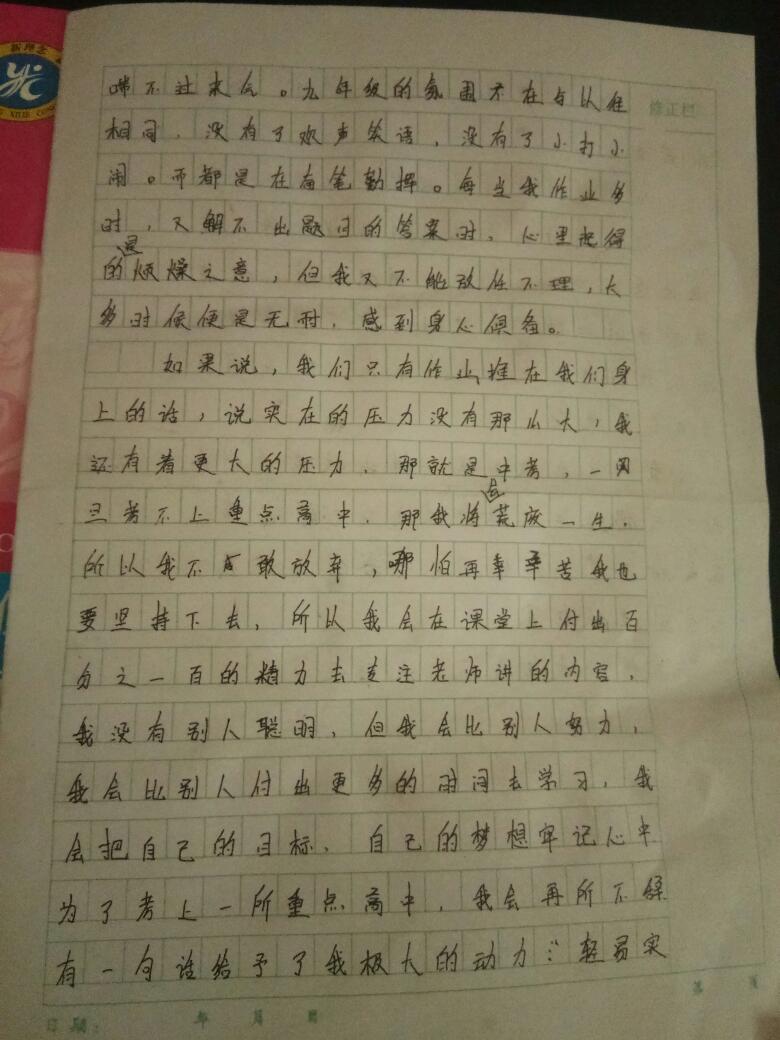 新理念
修正栏
喘不过来气。九年级的氛围不在与以往
相同，没有了欢声笑语，没有了小打小
闹。而都是在奋笔勤挥。每当我作业多
时，又解不出题目的答案时，心里
的是烦燥之意，但我又不能放任不理，大
多时候便是无耐，感到身心俱备。
如果说，我们只有作业堆在我们身
上的话，说实在的压力没有那么大，我
还有着更大的压力，那就是中考，一
旦考不上重点高中，那我将会荒废一生，
所以我不敢放弃，哪怕再辛苦我也
要坚持下去，所以我会在课堂上付出百
分之一百的精力去专注老师讲的内容，
我没有别人聪明，但我会比别人努力，
我会比别人付出更多的时间去学习，我
会把自己的目标、自己的梦想牢记心中
为了考上一所重点高中，我会再所不辞
有一句话给予了我极大的动力：“轻易实
日期： 年 月 日
第 页